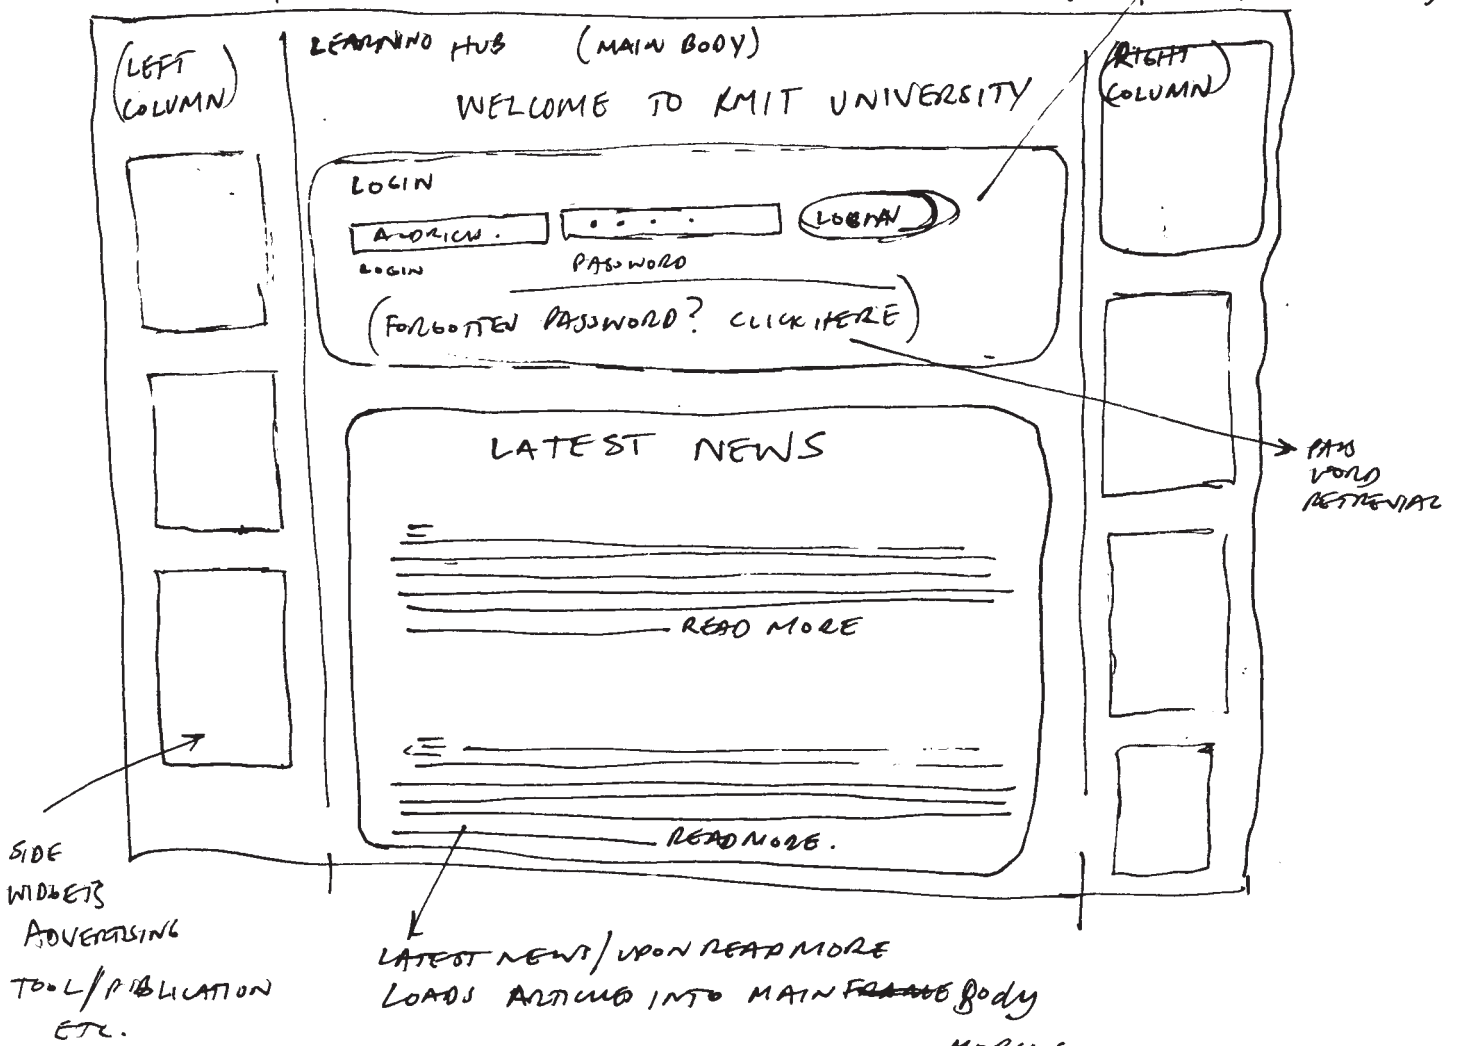 (LEFT
COLUMN)
LEARNING HUB (MAIN BODY)
(RIGHT
COLUMN)
WELCOME TO RMIT UNIVERSITY
LOGIN
LOGIN
PASSWORD
(FORGOTTEN PASSWORD? CLICK HERE)
PASS
WORD
RETREVIAL
LATEST NEWS
READ MORE
READ MORE.
SIDE
WIDGETS
ADVERTISING
TOOL/PUBLICATION
ETC.
LATEST NEWS/UPON READ MORE
LOADS ARTICLES INTO MAIN FRAME Body